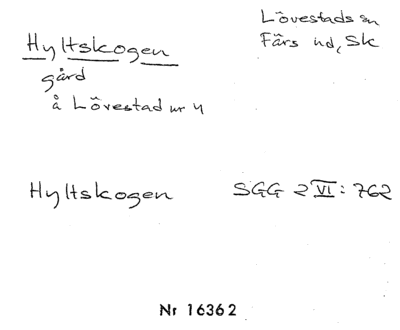 Hyltskogen
gård
å Lövestad nr 4
Lövestads sn
Färs hd, Sk
Hyltskogen
SGG 2 VI: 762
Nr 16362